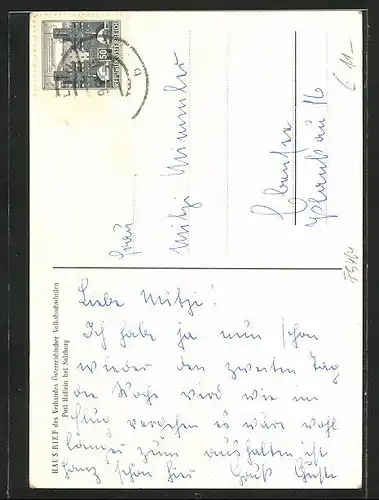 HAUS RIEF des Verbandes Österreichischer Volkshochschulen
Post Hallein bei Salzburg
Liebe Mitzi!
Ich habe ja nun schon
wieder den zweiten Tag
die Woche wird wie im
Flug vergehen es wäre wohl
länger zum aushalten ist
ganz schön hier Gruß Guste
Frau
Mitzi
Ebensee
Plankau 16
50
REPUBLIK ÖSTERREICH
E 11-